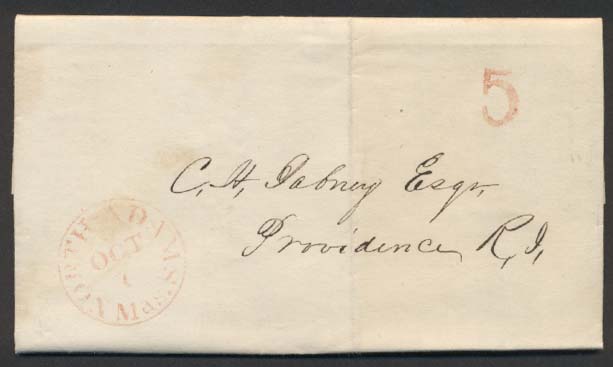 5
C. H. Dabney Esqr,
Providence R, I,
NORTH ADAMS
Mass.
OCT